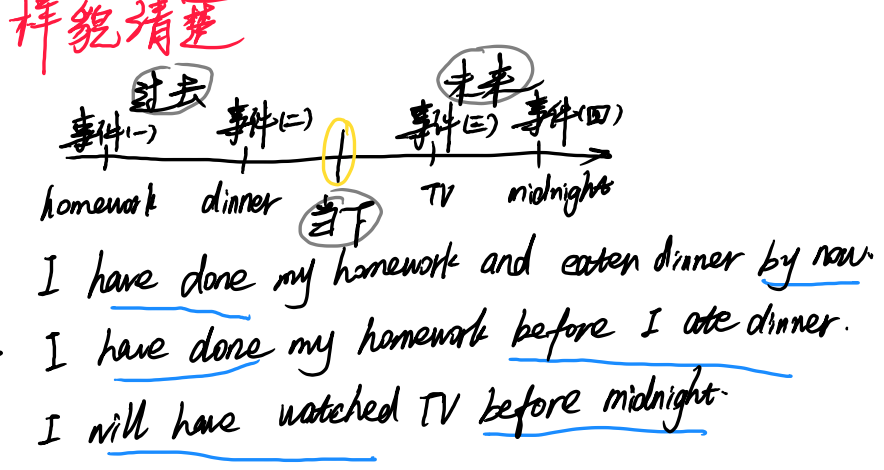 样貌清楚
过去 未来
事件(一) 事件(二) 事件(三) 事件(四)
homework dinner 当下 TV midnight
I have done my homework and eaten dinner by now.
I have done my homework before I ate dinner.
I will have watched TV before midnight.